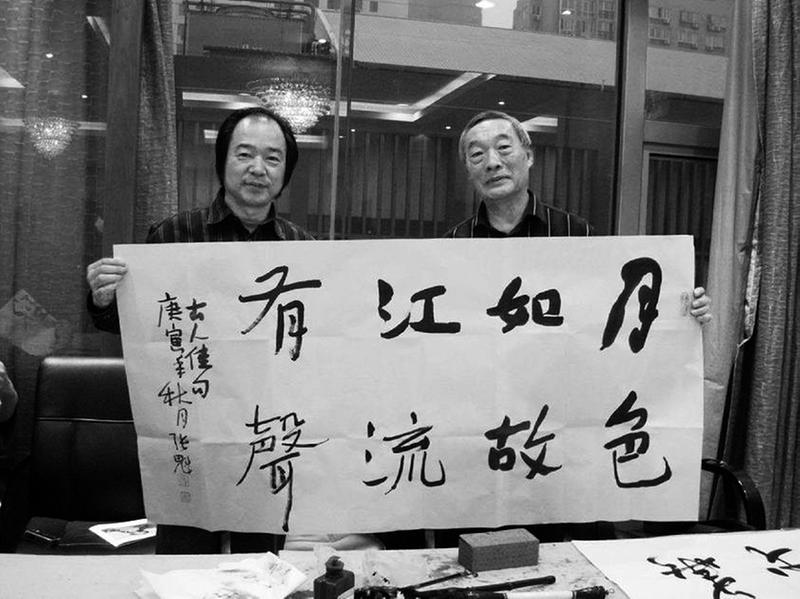 月色
如故
江流
有聲
古人佳句
庚寅年秋月张魁